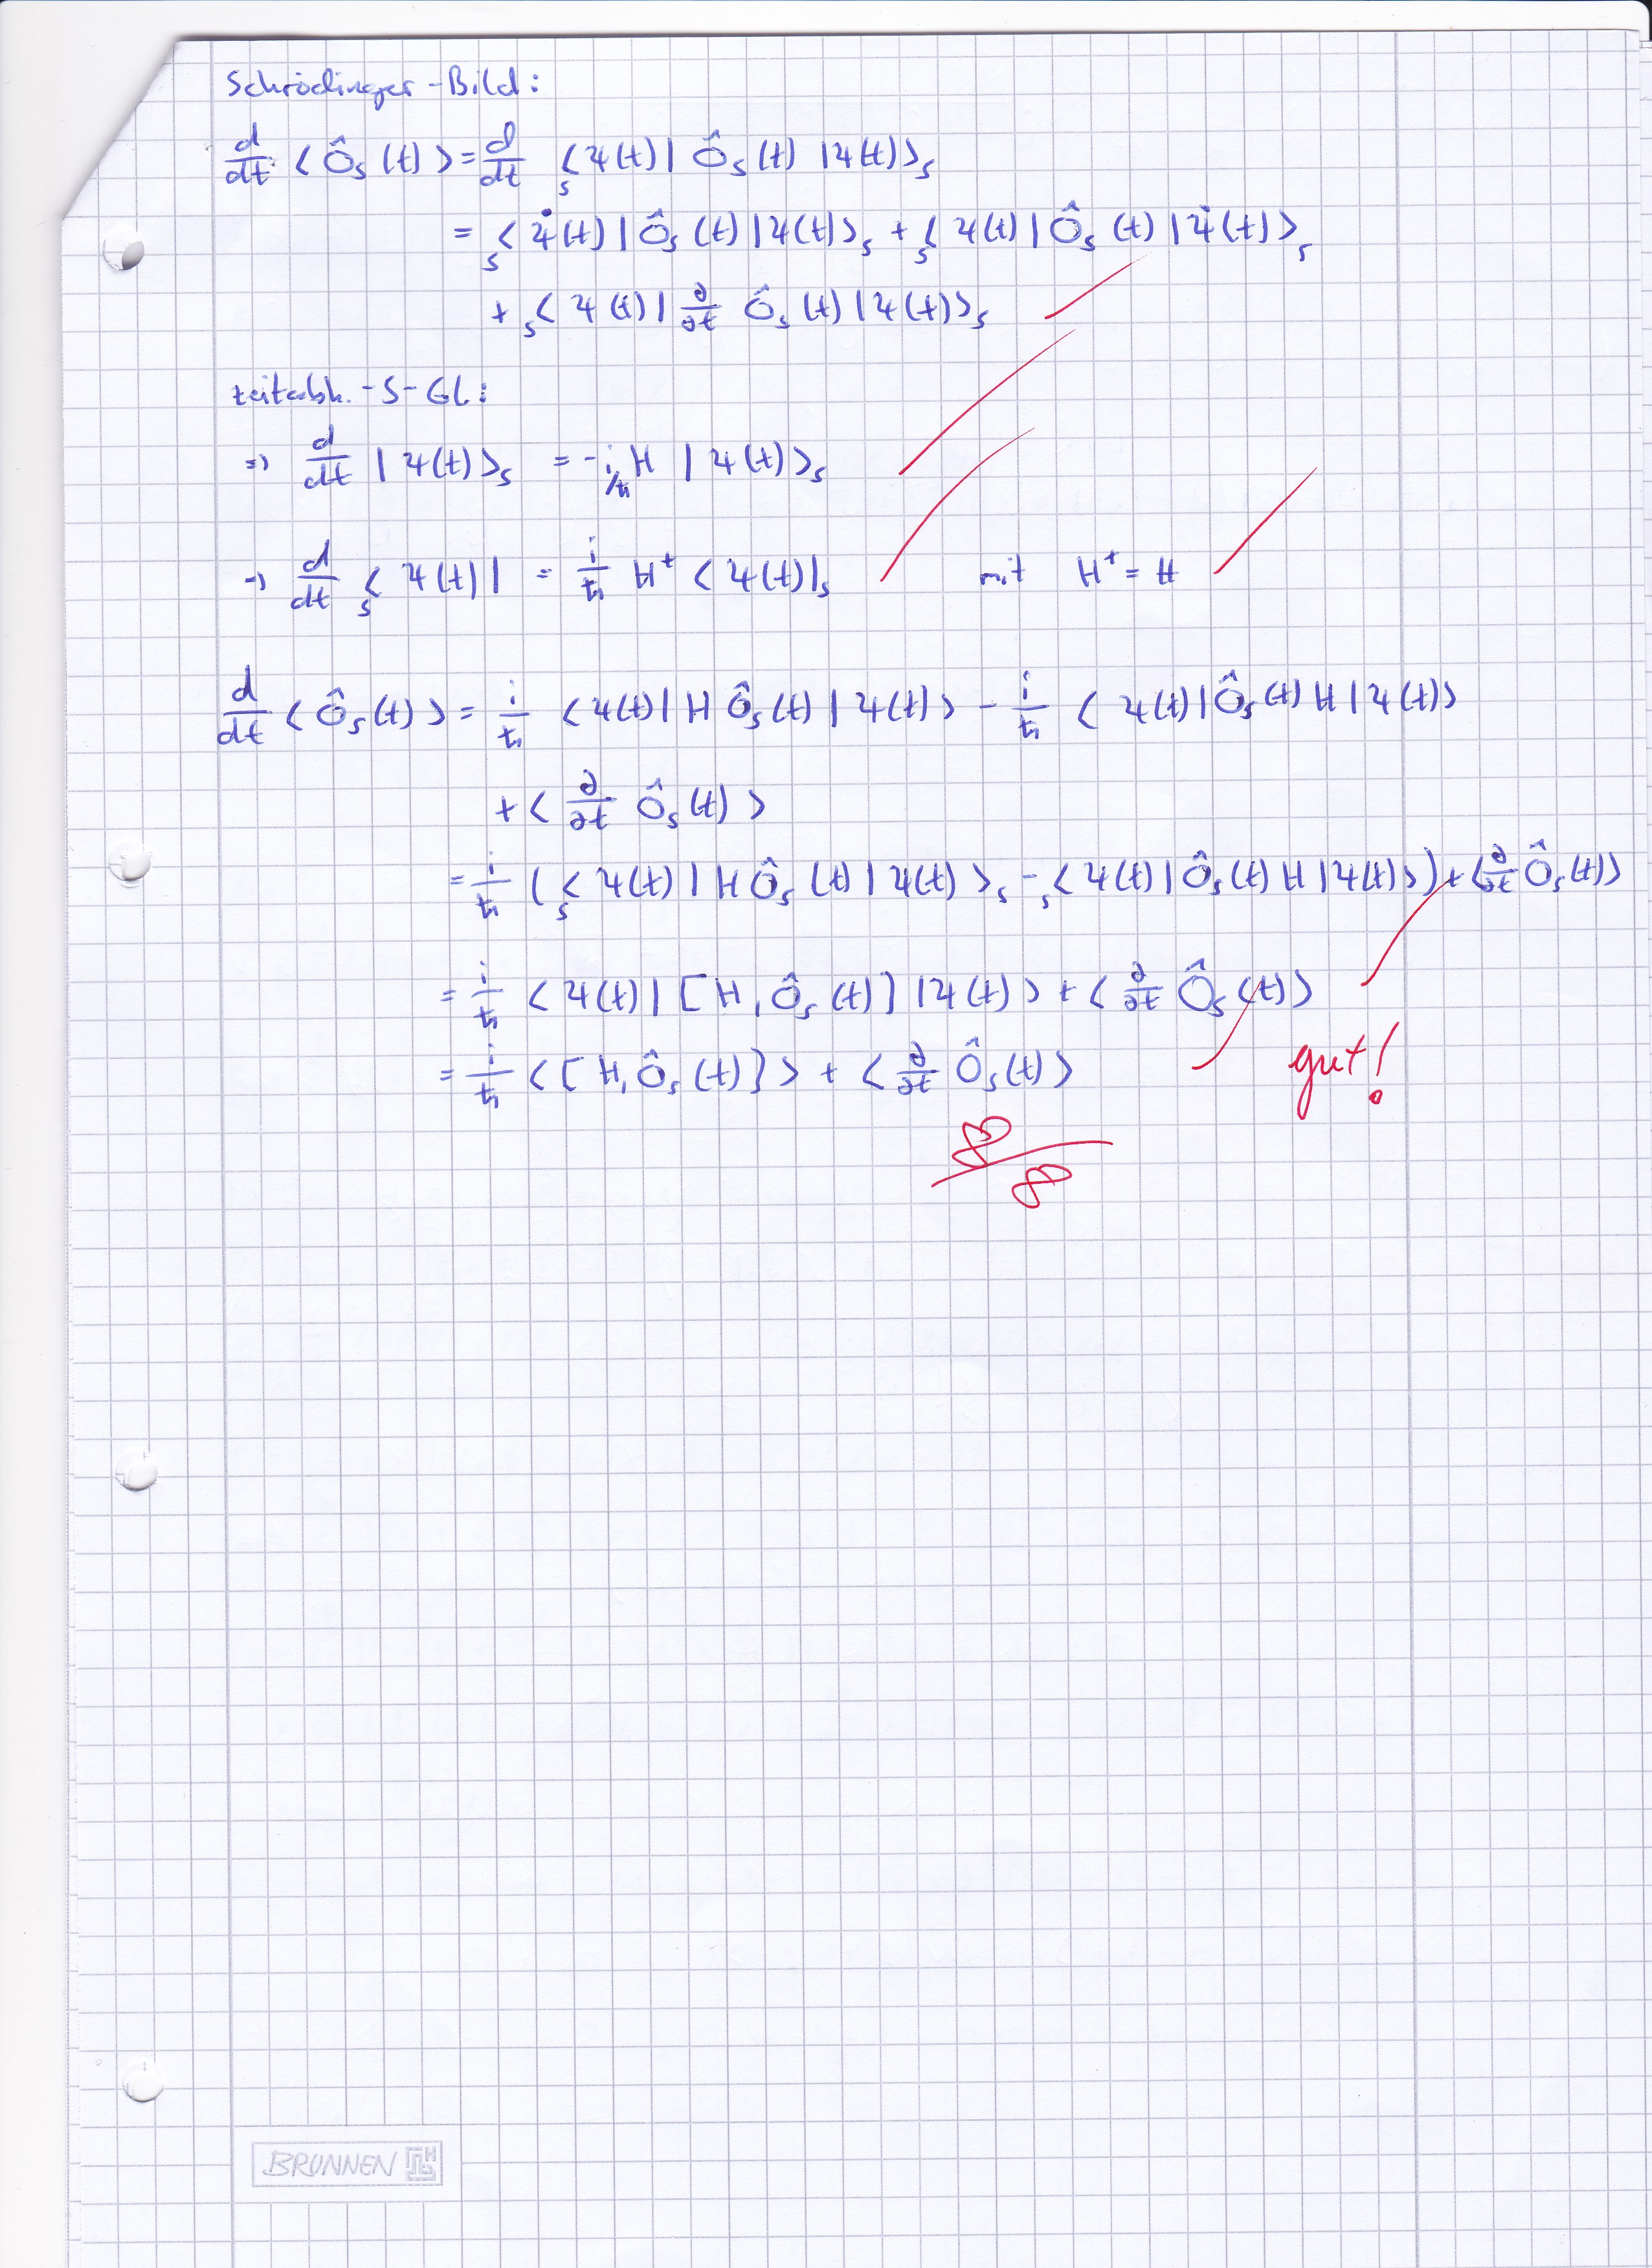 Schrödinger-Bild:
d/dt ⟨Ô_S(t)⟩ = d/dt _S⟨ψ(t)| Ô_S(t) |ψ(t)⟩_S
= _S⟨ψ̇(t)|Ô_S(t)|ψ(t)⟩_S + _S⟨ψ(t)|Ô_S(t)|ψ̇(t)⟩_S
+ _S⟨ψ(t)| ∂/∂t Ô_S(t)|ψ(t)⟩_S
zeitabh.-S-Gl:
⇒ d/dt |ψ(t)⟩_S = -i/ħ H |ψ(t)⟩_S
→ d/dt _S⟨ψ(t)| = i/ħ H⁺ ⟨ψ(t)|_S mit H⁺ = H
d/dt ⟨Ô_S(t)⟩ = i/ħ ⟨ψ(t)|H Ô_S(t)|ψ(t)⟩ - i/ħ ⟨ψ(t)|Ô_S(t) H|ψ(t)⟩
+ ⟨∂/∂t Ô_S(t)⟩
= i/ħ (_S⟨ψ(t)|H Ô_S(t)|ψ(t)⟩_S - _S⟨ψ(t)|Ô_S(t) H|ψ(t)⟩) + ⟨∂/∂t Ô_S(t)⟩
= i/ħ ⟨ψ(t)|[H, Ô_S(t)]|ψ(t)⟩ + ⟨∂/∂t Ô_S(t)⟩
= i/ħ ⟨[H, Ô_S(t)]⟩ + ⟨∂/∂t Ô_S(t)⟩
gut!
8/8
BRUNNEN